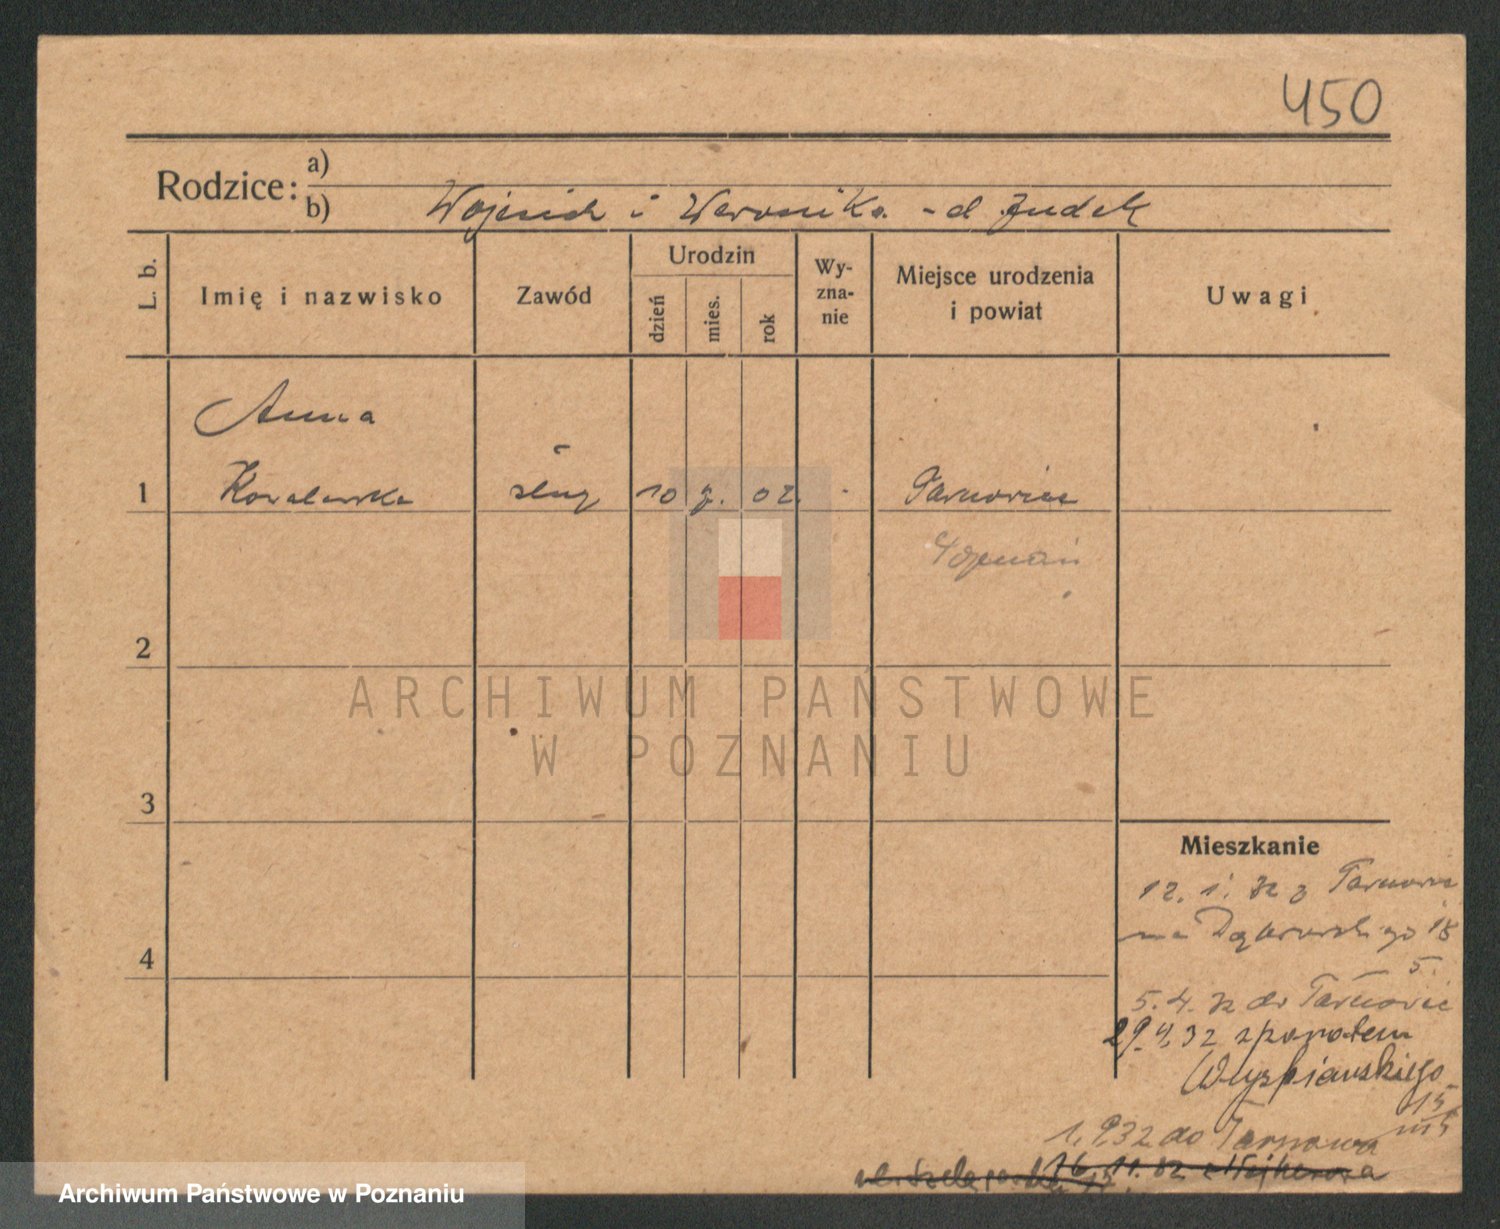 450
Rodzice: a)
b) Wojciech i Weronika - d Dudek
L. b.
Imię i nazwisko
Zawód
Urodzin
dzień
mies.
rok
Wy-
zna-
nie
Miejsce urodzenia
i powiat
Uwagi
Anna
1 Kowalewska służ 10 7. 02. - Tarnowiec
Poznań
2
ARCHIWUM PAŃSTWOWE
W POZNANIU
3
Mieszkanie
12. 1. 32 z Tarnowa
na Dąbrowskiego 18
5.
4
5. 4. 32 do Tarnowic
29.4.32 zpowrotem
Wyspiańskiego
15
m5
1.9.32 do Tarnowa
16. 11. 32 z Wejherowa
Archiwum Państwowe w Poznaniu